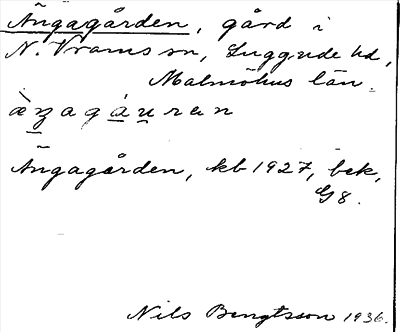 Ängagården, gård i
N. Vrams sn, Luggude hd,
Malmöhus län.
Ängagården, kb 1927, bek,
G8.
Nils Bengtsson 1936.